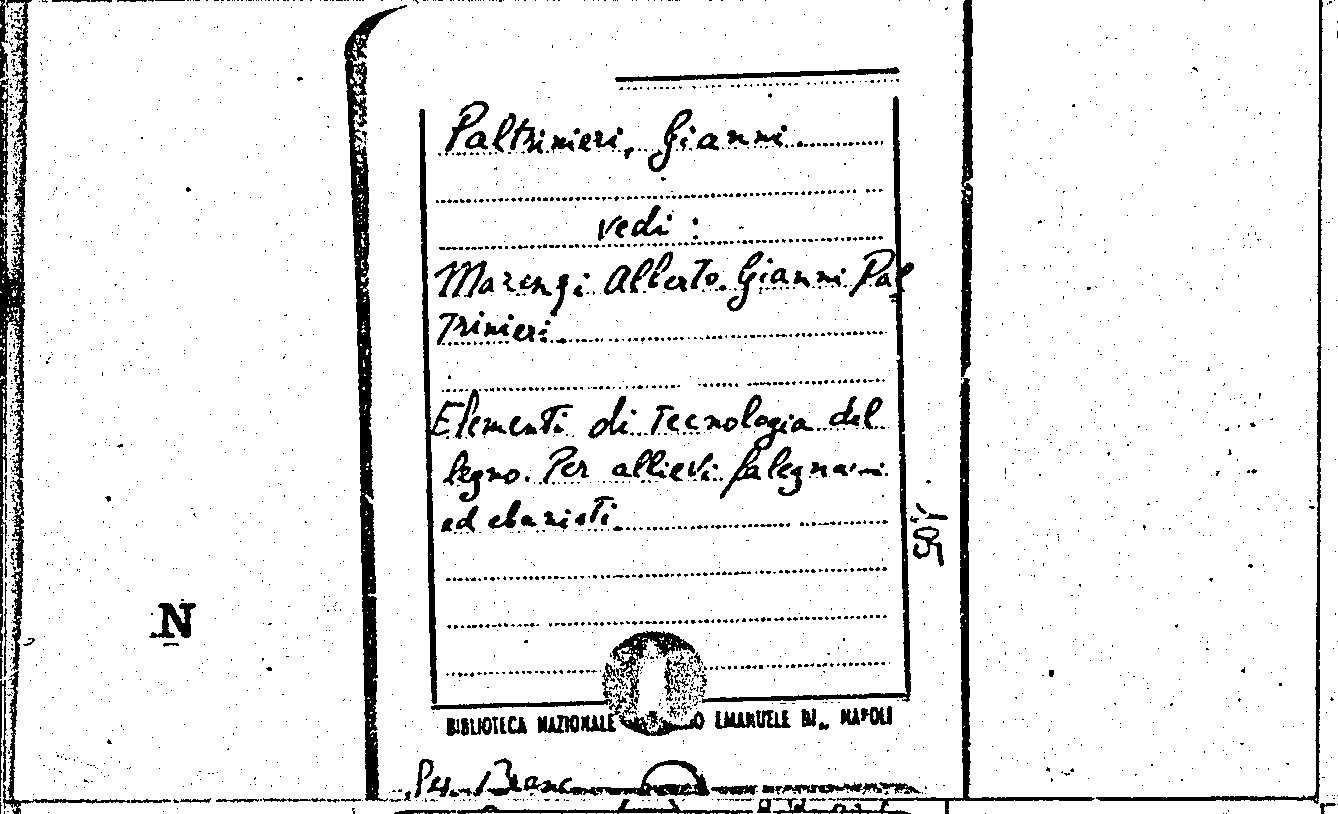 Paltrinieri, Gianni.
vedi :
Marengi Alberto. Gianni Pal
trinieri.
Elementi di Tecnologia del
legno. Per allievi falegnami
ed ebanisti.
N
BIBLIOTECA NAZIONALE EMANUELE III, NAPOLI